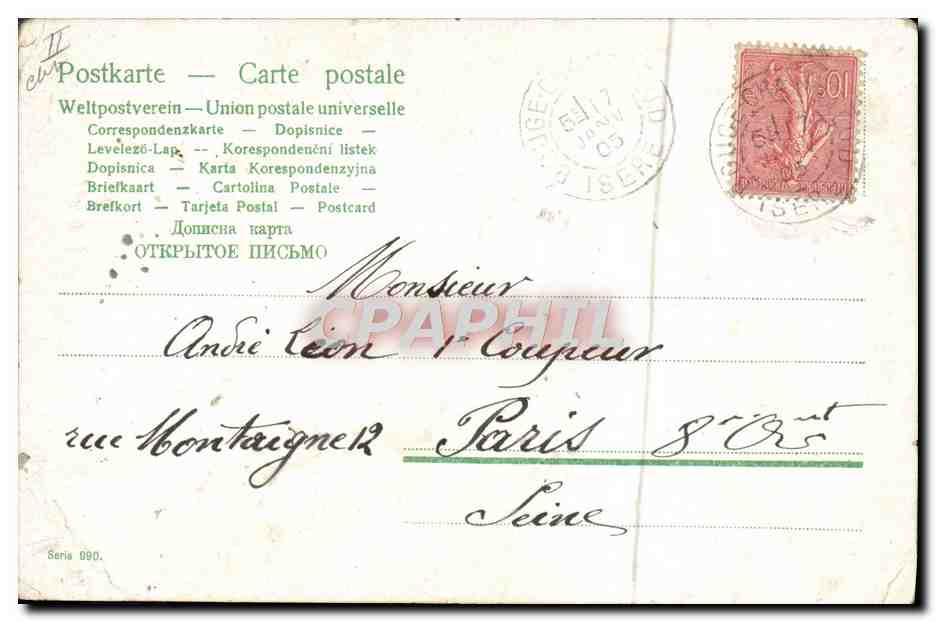 II
Postkarte — Carte postale
Weltpostverein — Union postale universelle
Correspondenzkarte — Dopisnice —
Levelező-Lap -- Korespondenční listek
Dopisnica — Karta Korespondenzyjna
Briefkaart — Cartolina Postale —
Brefkort — Tarjeta Postal — Postcard
Дописна карта
ОТКРЫТОЕ ПИСЬМО
17
JANV
05
ISERE
10c
ISERE
Monsieur
CPAPHIL
André Léon 1er Coupeur
rue Montaigne 12 Paris 8e
Seine
Serie 990.